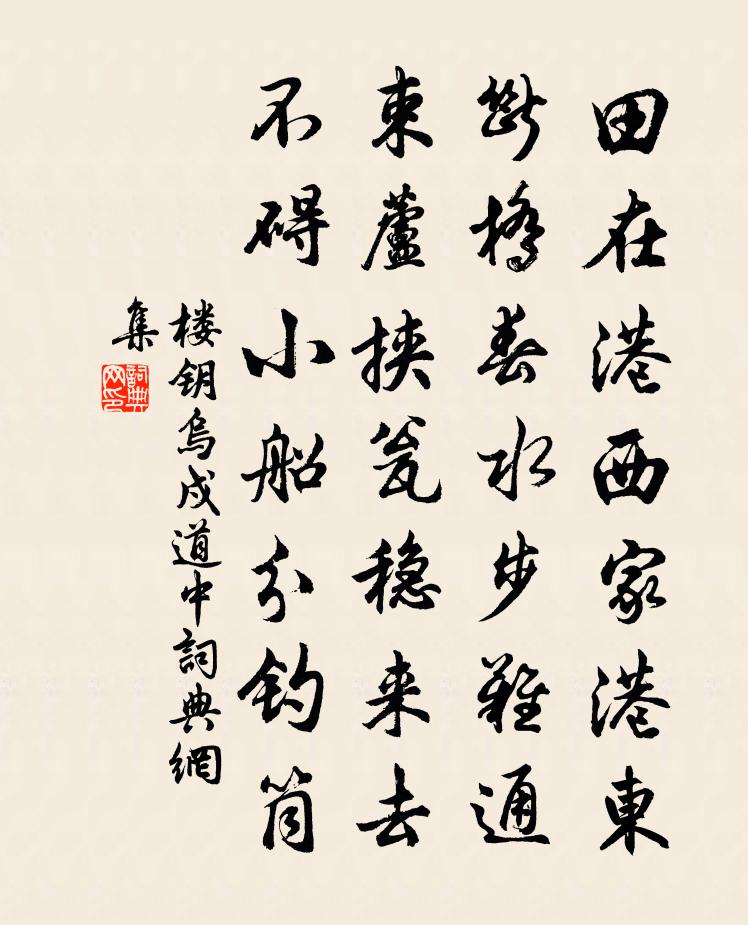 田在港西家港東
斷橋春水步難通
束蘆挾瓮稳来去
不碍小船分钓筒
楼钥烏戍道中詞典網
集
詞典
网印